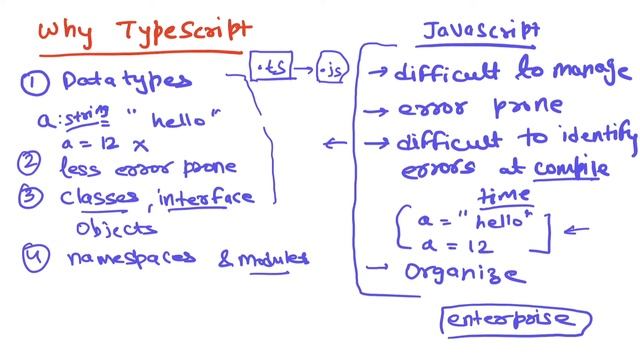 Why TypeScript
① Datatypes
a: string = "hello"
a = 12 x
② less error prone
③ classes, interface
objects
④ namespaces & modules
.ts → .js
Javascript
→ difficult to manage
→ error prone
→ difficult to identify
errors at compile
time
a = "hello"
a = 12
→ Organize
enterprise